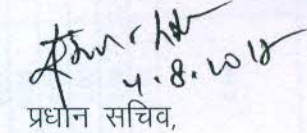 4.8.2018
प्रधान सचिव,